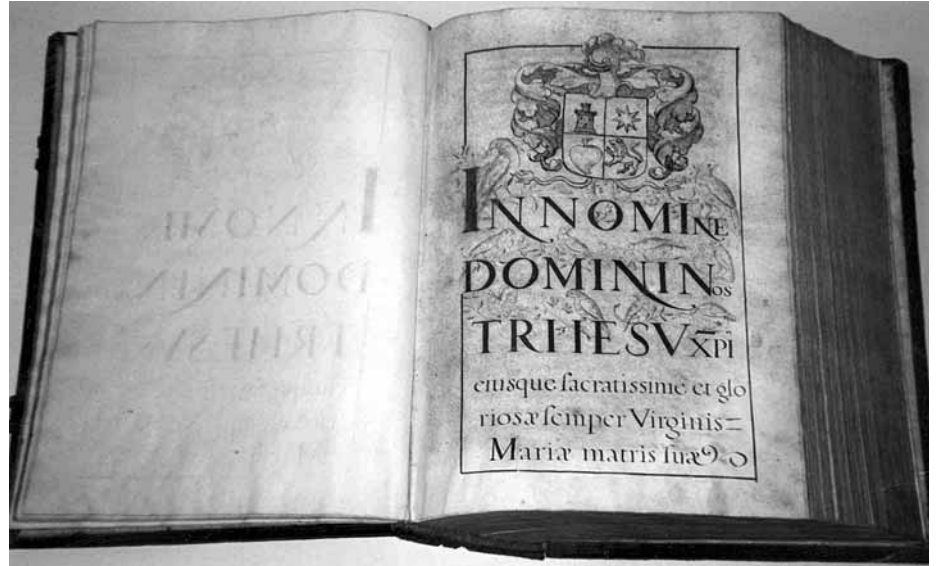 IN NOMINE
DOMINI NOS
TRI IESV XP̄I
eiusque ſacratissime et glo
riosæ ſemper Virginis=
Mariæ matris ſuæ